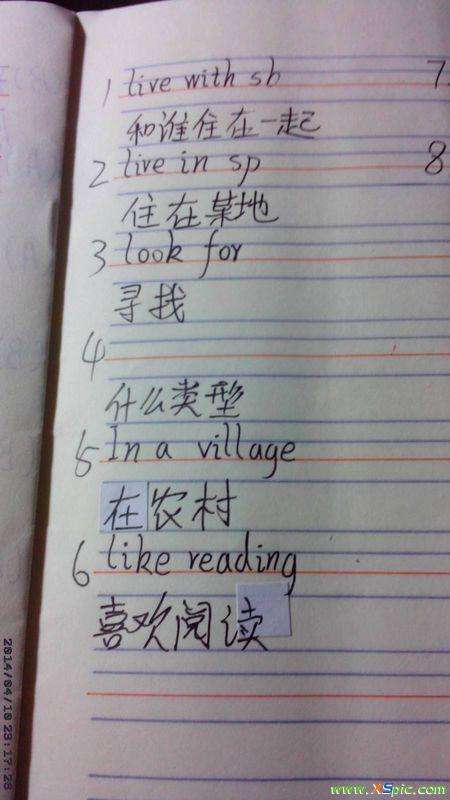 1 live with sb
7.
和谁住在一起
2 live in sp
8
住在某地
3 look for
寻找
4
什么类型
5 In a village
在农村
6 like reading
喜欢阅读
2014/04/10 23:17:28
www.XSpic.com